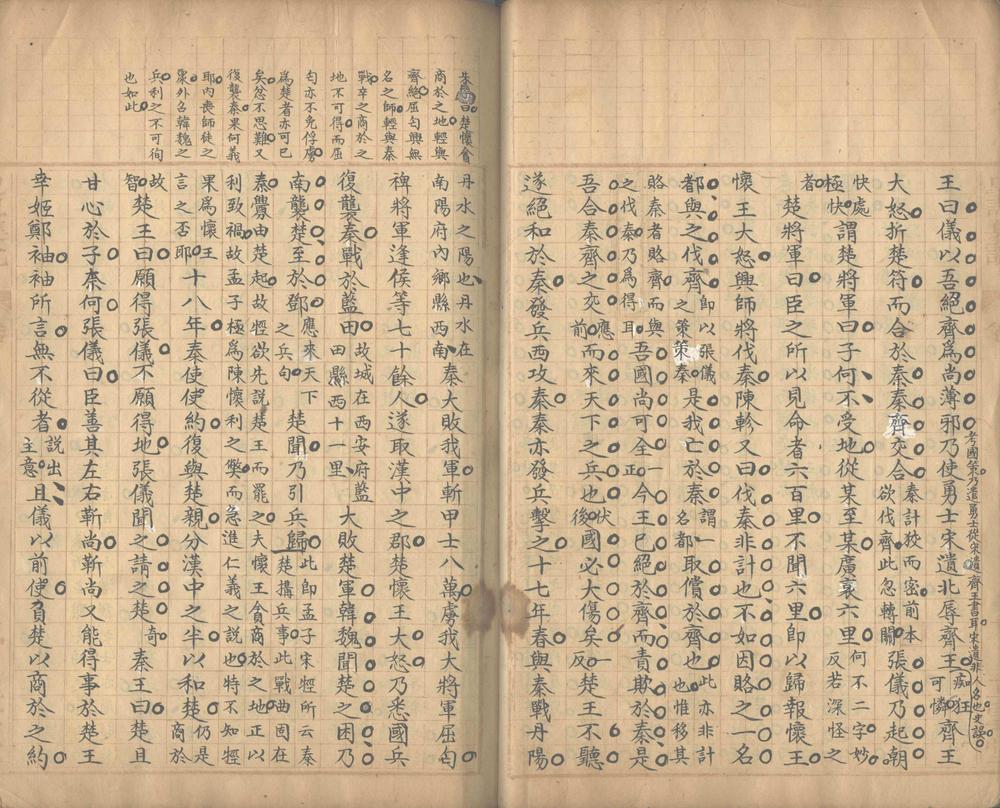 王曰儀以吾絕齊爲尚薄邪乃使勇士宋遺北辱齊王痴狂可憐齊王
考國策乃遣勇士從宋遺齊王書耳宋遺非人名也史誤
大怒折楚符而合於秦秦齊交合秦計狡而密前本欲伐齊此忽轉關張儀乃起朝
快處極快謂楚將軍曰子何不受地從某至某廣袤六里何不二字妙反若深怪之
者楚將軍曰臣之所以見命者六百里不聞六里卽以歸報懷王
懷王大怒興師將伐秦陳軫又曰伐秦非計也不如因賂之一名
都與之伐齊卽以張儀之策策秦是我亡於秦謂一名都取償於齊也此亦非計也惟移其
賂秦者賂齊而與之伐秦乃爲得耳吾國尚可全一正今王已絕於齊而責欺於秦是
吾合秦齊之交應前而來天下之兵也伏後國必大傷矣一反楚王不聽
遂絕和於秦發兵西攻秦秦亦發兵擊之十七年春與秦戰丹陽
丹水之陽也丹水在南陽府內鄉縣西南秦大敗我軍斬甲士八萬虜我大將軍屈匄
裨將軍逢侯等七十餘人遂取漢中之郡楚懷王大怒乃悉國兵
復襲秦戰於藍田故城在西安府藍田縣西十一里大敗楚軍韓魏聞楚之困乃
南襲楚至於鄧應來天下之兵句楚聞乃引兵歸此卽孟子宋牼所云秦楚搆兵事此戰曲固在
秦釁由楚起故牼欲先說楚王而罷之夫懷王貪商於之地正以
利致禍故孟子極爲陳懷利之獘而急進仁義之說也特不知牼
果爲懷王言之否耶十八年秦使使約復與楚親分漢中之半以和楚仍是商於
故智楚王曰願得張儀不願得地張儀聞之請之楚奇秦王曰楚且
甘心於子柰何張儀曰臣善其左右靳尚靳尚又能得事於楚王
幸姬鄭袖袖所言無不從者說出主意且儀以前使負楚以商於之約
曰楚懷貪
商於之地輕與
齊絕屈匄興無
名之師輕與秦
戰卒之商於之
地不可得而屈
匄亦不免俘虜
爲楚者亦可已
矣忿不思難又
復襲秦果何義
耶內喪師徒之
衆外召韓魏之
兵利之不可徇
也如此